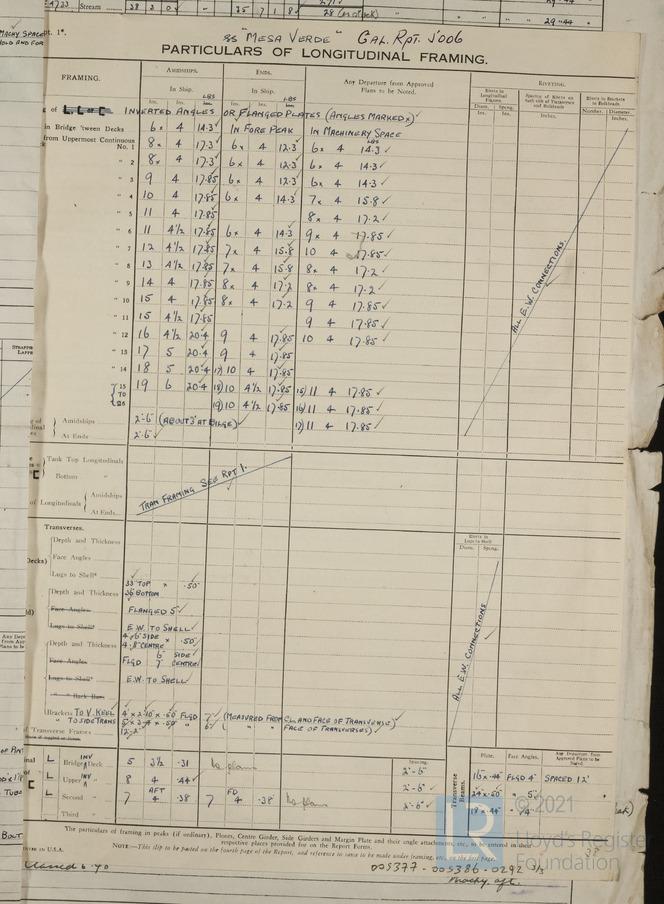 Stream 38 2 0 35 7 1 8 28 (in clack)
29·44
SS "MESA VERDE" CAL. RPT. J006
PARTICULARS OF LONGITUDINAL FRAMING.
FRAMING. AMIDSHIPS. ENDS. Any Departure from Approved Plans to be Noted. RIVETING.
In Ship. In Ship.
INVERTED ANGLES OR FLANGED PLATES (ANGLES MARKED x)
in Bridge 'tween Decks 6x 4 14·3 IN FORE PEAK IN MACHINERY SPACE
from Uppermost Continuous No. 1 8x 4 17·3 6x 4 12·3 6x 4 14·3
" 2 8x 4 17·3 6x 4 12·3 6x 4 14·3
" 3 9 4 17·85 6x 4 12·3 6x 4 14·3
" 4 10 4 17·85 6x 4 14·3 7x 4 15·8
" 5 11 4 17·85 8x 4 17·2
" 6 11 4½ 17·85 6x 4 14·3 9x 4 17·85
" 7 12 4½ 17·85 7x 4 15·8 10 4 17·85
" 8 13 4½ 17·85 7x 4 15·8 8x 4 17·2
" 9 14 4 17·85 8x 4 17·2 8x 4 17·2
" 10 15 4 17·85 8x 4 17·2 9 4 17·85
" 11 15 4½ 17·85 9 4 17·85
" 12 16 4½ 20·4 9 4 17·85 10 4 17·85
" 13 17 5 20·4 9 4 17·85
" 14 18 5 20·4 17) 10 4 17·85
" 15 19 6 20·4 18) 10 4½ 17·85 15) 11 4 17·85
TO 26 19) 10 4½ 17·85 16) 11 4 17·85
17) 11 4 17·85
Amidships 2'-6" (ABOUT 3' AT BILGE)
At Ends 2'-6"
ALL E.W. CONNECTIONS.
Tank Top Longitudinals
Bottom "
of Longitudinals Amidships
At Ends
TRAN FRAMING SEE RPT 1.
Transverses.
Depth and Thickness
Face Angles
Lugs to Shell*
Depth and Thickness 33" TOP x ·50" 36" BOTTOM
Face Angles FLANGED 5"
Lugs to Shell* E.W. TO SHELL
Depth and Thickness 4'-6" SIDE x ·50" 4'-8" CENTRE
Face Angles FLGD 6" SIDE 7" CENTRE
Lugs to Shell* E.W. TO SHELL
" " Back Bars
Brackets TO V. KEEL FLGD 7" (MEASURED FROM CL AND FACE OF TRANSVERSE)
" TO SIDE TRANS 6" ( " " FACE OF TRANSVERSES)
Transverse Frames 12'-2"
ALL E.W. CONNECTIONS
Spacing. Plate. Face Angles. Any Departure from Approved Plans to be Noted.
Bridge Deck INV 5 3½ ·31 2'-6" 16 x ·44" FLGD 4" SPACED 12'
Upper INV 8 4 ·44 2'-6" 24 x ·50" " 5"
Second AFT 7 4 ·38 FD 7 4 ·38 2'-6" 18 x ·44" " 4"
Third
Transverse Beams.
The particulars of framing in peaks (if ordinary), Floors, Centre Girder, Side Girders and Margin Plate and their angle attachments, etc., to be entered in their respective places provided for on the Report Forms.
NOTE:—This slip to be pasted on the fourth page of the Report, and reference to same to be made under framing, etc., on the first page.
IN U.S.A.
005377-005386-0292 3/3
Machy. aft.
© 2021
Lloyd's Register
Foundation